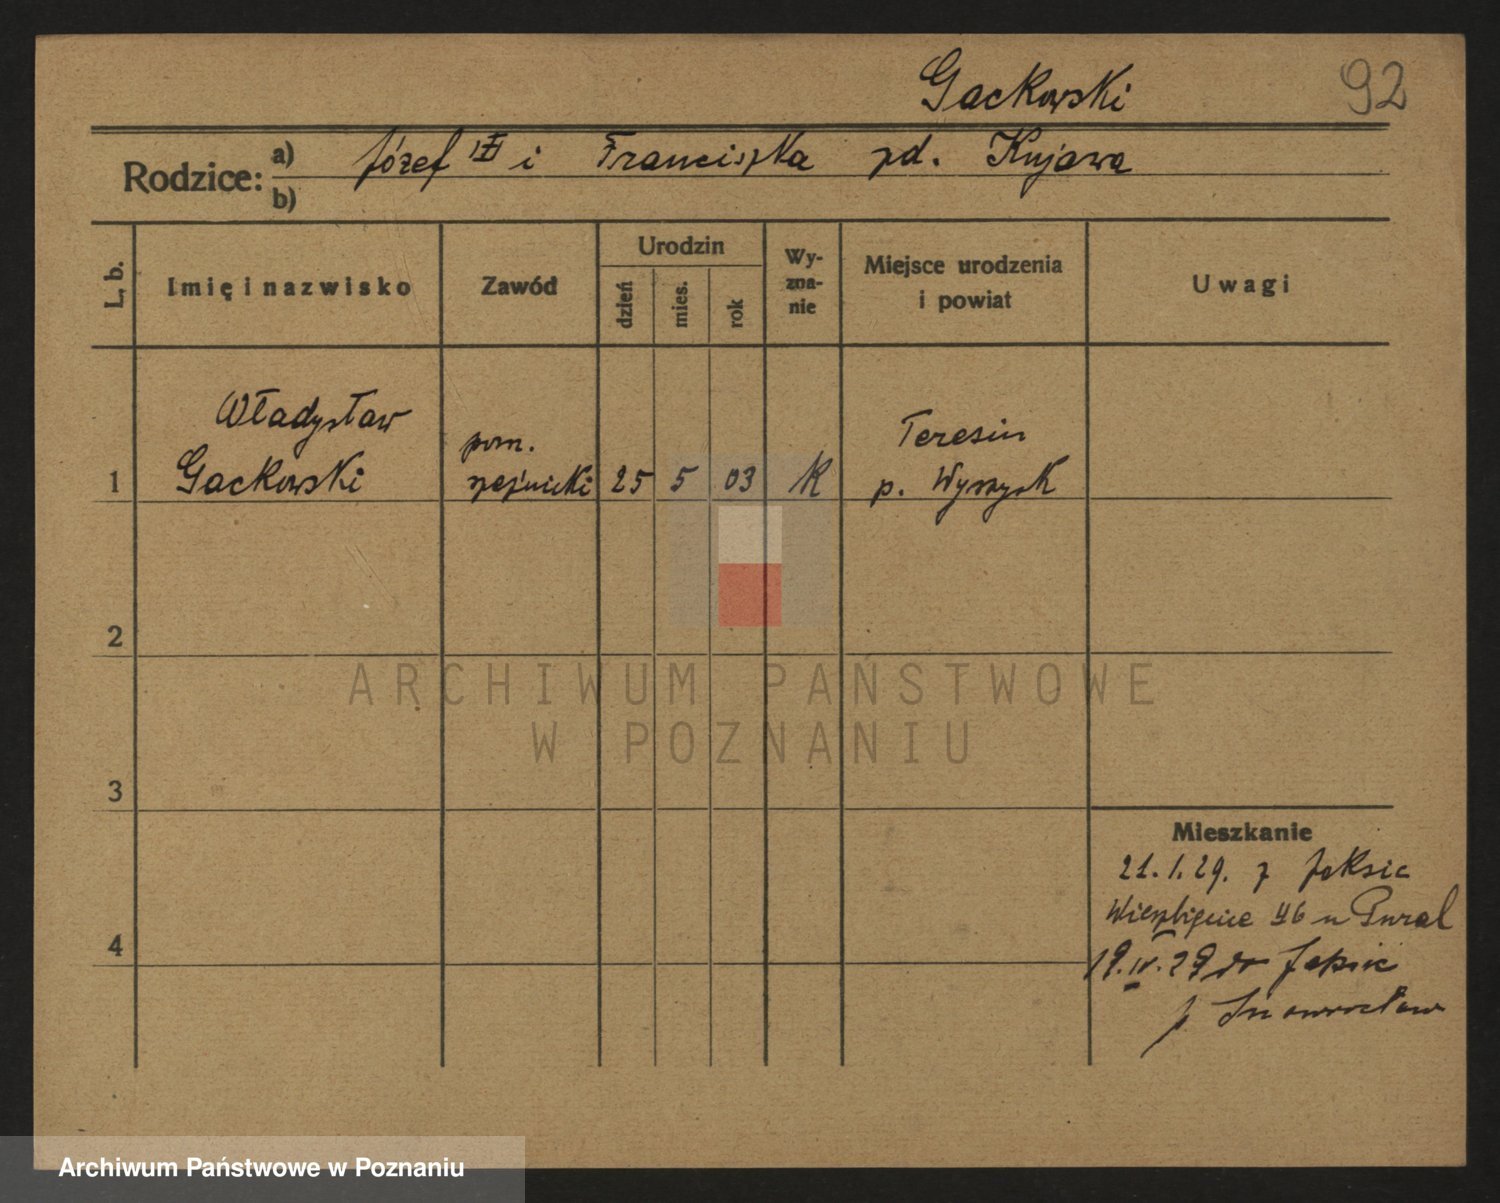 Gackowski
92
Rodzice: a) Józef i Franciszka zd. Kujawa
b)
L. b.
Imię i nazwisko
Zawód
Urodzin
dzień
mies.
rok
Wy-
zna-
nie
Miejsce urodzenia
i powiat
Uwagi
1
Władysław
Gackowski
pom.
rzeźnicki
25
5
03
K
Teresin
p. Wyrzysk
2
3
4
Mieszkanie
21.1.29. z Jaksic
Wierzbięcice 46 u
19.IV.29 do Jaksic
p Inowrocław
ARCHIWUM PAŃSTWOWE
W POZNANIU
Archiwum Państwowe w Poznaniu